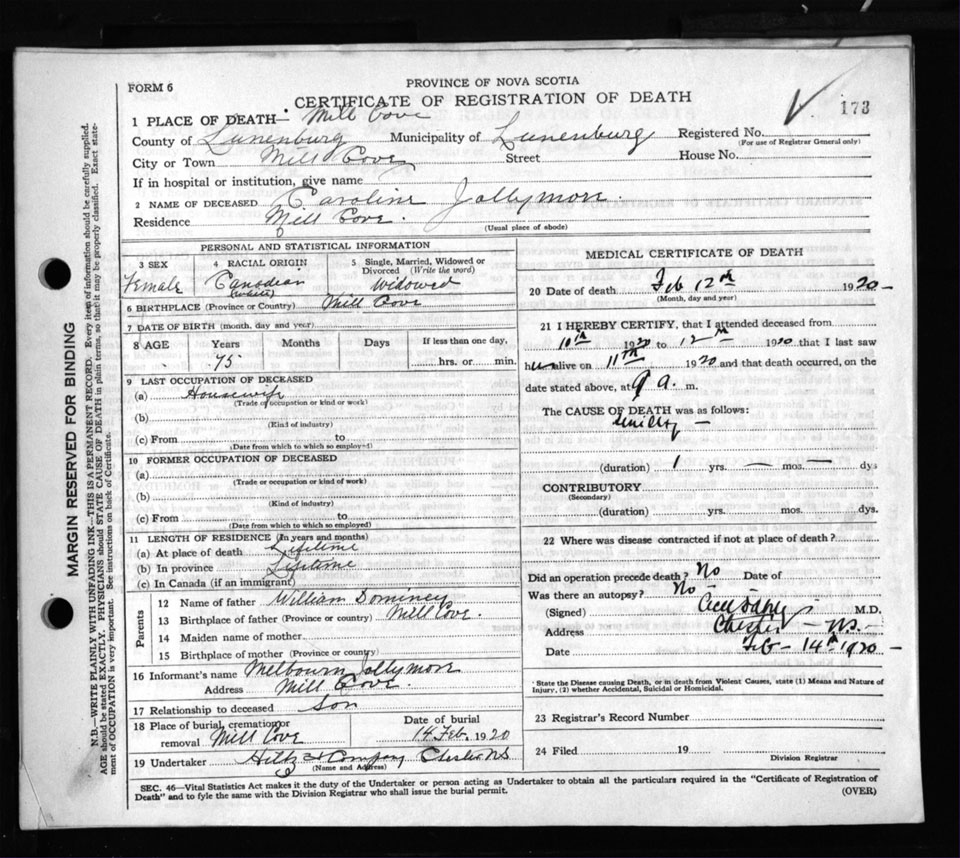 FORM 6
PROVINCE OF NOVA SCOTIA
CERTIFICATE OF REGISTRATION OF DEATH
173
1 PLACE OF DEATH— Mill Cove
County of Lunenburg Municipality of Lunenburg Registered No.
(For use of Registrar General only)
City or Town Mill Cove Street House No.
If in hospital or institution, give name
2 NAME OF DECEASED Caroline Jollymore.
Residence Mill Cove.
(Usual place of abode)
PERSONAL AND STATISTICAL INFORMATION
3 SEX 4 RACIAL ORIGIN 5 Single, Married, Widowed or Divorced (Write the word)
Female Canadian (White) Widowed
6 BIRTHPLACE (Province or Country) Mill Cove
7 DATE OF BIRTH (month, day and year)
8 AGE Years Months Days If less than one day,
75 hrs. or min.
9 LAST OCCUPATION OF DECEASED
(a) Housewife
(Trade or occupation or kind or work)
(b)
(Kind of industry)
(c) From to
(Date from which to which so employed)
10 FORMER OCCUPATION OF DECEASED
(a)
(Trade or occupation or kind of work)
(b)
(Kind of industry)
(c) From to
(Date from which to which so employed)
11 LENGTH OF RESIDENCE (In years and months)
(a) At place of death Lifetime
(b) In province Lifetime
(c) In Canada (if an immigrant)
Parents
12 Name of father William Dominey
13 Birthplace of father (Province or country) Mill Cove.
14 Maiden name of mother
15 Birthplace of mother (Province or country)
16 Informant's name Melbourn Jollymore
Address Mill Cove.
17 Relationship to deceased Son
18 Place of burial, cremation or removal Mill Cove
Date of burial
14 Feb. 1920
19 Undertaker Hiltz & Company Chester N.S
(Name and Address)
MEDICAL CERTIFICATE OF DEATH
20 Date of death Feb 12th 1920–
(Month, day and year)
21 I HEREBY CERTIFY, that I attended deceased from
10th 1920 to 12th 1920 that I last saw
her alive on 11th 1920 and that death occurred, on the
date stated above, at 9 a. m.
The CAUSE OF DEATH was as follows:
Senility –
(duration) 1 yrs. — mos. — dys
CONTRIBUTORY
(Secondary)
(duration) yrs. mos. dys.
22 Where was disease contracted if not at place of death?
Did an operation precede death? No Date of
Was there an autopsy? No
(Signed) M.D.
Address Chester – N.S. –
Date Feb – 14th 1920 –
* State the Disease causing Death, or in death from Violent Causes, state (1) Means and Nature of
Injury, (2) whether Accidental, Suicidal or Homicidal.
23 Registrar's Record Number
24 Filed 19
Division Registrar
SEC. 46—Vital Statistics Act makes it the duty of the Undertaker or person acting as Undertaker to obtain all the particulars required in the "Certificate of Registration of
Death" and to fyle the same with the Division Registrar who shall issue the burial permit.
(OVER)
MARGIN RESERVED FOR BINDING
N.B.—WRITE PLAINLY WITH UNFADING INK—THIS IS A PERMANENT RECORD. Every item of information should be carefully supplied.
AGE should be stated EXACTLY. PHYSICIANS should STATE CAUSE OF DEATH in plain terms, so that it may be properly classified. Exact state-
ment of OCCUPATION is very important. See instructions on back of Certificate.